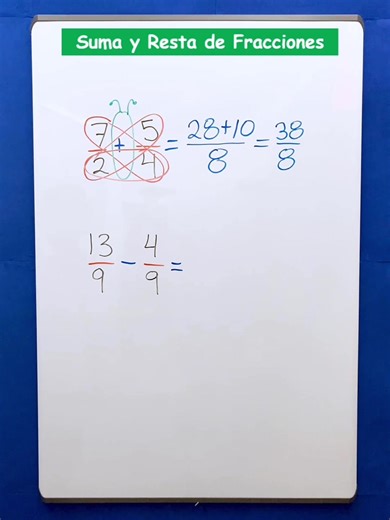 Suma y Resta de Fracciones
7/2 + 5/4 = 28+10/8 = 38/8
13/9 - 4/9 =